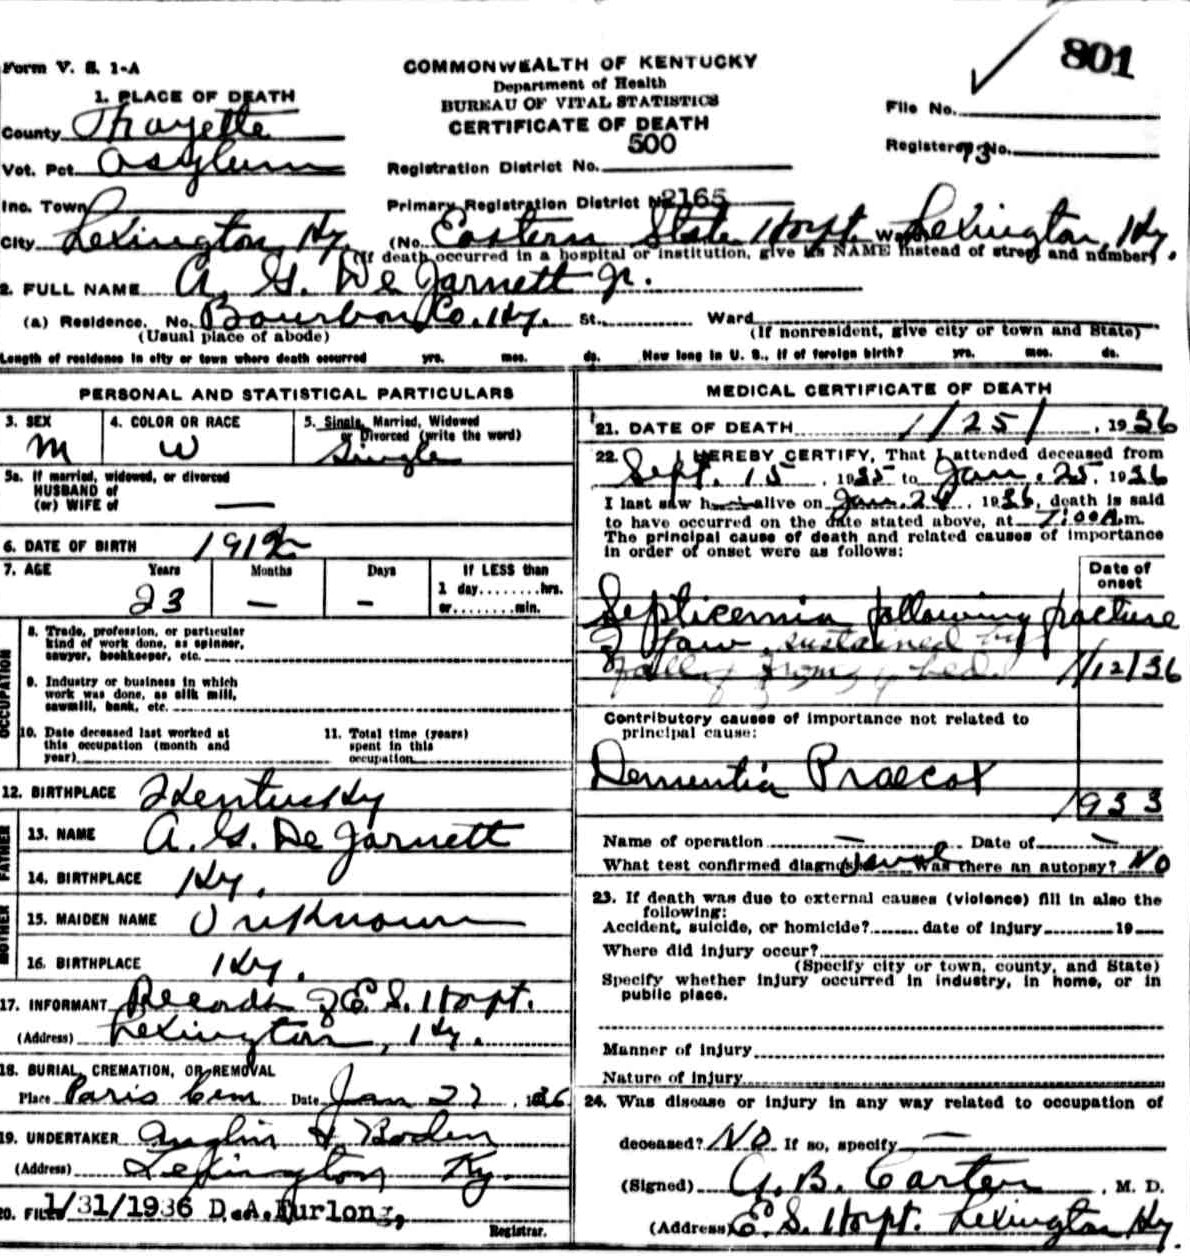 801
Form V. S. 1-A
COMMONWEALTH OF KENTUCKY
Department of Health
BUREAU OF VITAL STATISTICS
CERTIFICATE OF DEATH
1. PLACE OF DEATH
File No.
County Fayette
500
Registered No. 93
Vot. Pct. Asylum
Registration District No.
Inc. Town
Primary Registration District No. 2165
City Lexington, Ky. (No. Eastern State Hospt. Ward Lexington, Ky.
(If death occurred in a hospital or institution, give its NAME instead of street and number)
2. FULL NAME A. G. De Jarnett Jr.
(a) Residence. No. Bourbon Co. Ky. St., Ward
(Usual place of abode) (If nonresident, give city or town and State)
Length of residence in city or town where death occurred yrs. mos. ds. How long in U. S., if of foreign birth? yrs. mos. ds.
PERSONAL AND STATISTICAL PARTICULARS
3. SEX M
4. COLOR OR RACE W
5. Single, Married, Widowed
or Divorced (write the word)
Single
5a. If married, widowed, or divorced
HUSBAND of
(or) WIFE of —
6. DATE OF BIRTH 1912
7. AGE Years Months Days If LESS than
1 day........hrs.
23 — — or........min.
OCCUPATION
8. Trade, profession, or particular
kind of work done, as spinner,
sawyer, bookkeeper, etc.
9. Industry or business in which
work was done, as silk mill,
sawmill, bank, etc.
10. Date deceased last worked at
this occupation (month and
year)
11. Total time (years)
spent in this
occupation
12. BIRTHPLACE Kentucky
FATHER
13. NAME A. G. De Jarnett
14. BIRTHPLACE Ky.
MOTHER
15. MAIDEN NAME Unknown
16. BIRTHPLACE Ky.
17. INFORMANT Records of E. S. Hospt.
(Address) Lexington, Ky.
18. BURIAL, CREMATION, OR REMOVAL
Place Paris Cem Date Jan 27, 1936
19. UNDERTAKER
(Address) Lexington Ky.
20. FILED 1/31/1936 D. A. Furlong,
Registrar.
MEDICAL CERTIFICATE OF DEATH
21. DATE OF DEATH 1/25/, 1936
22. I HEREBY CERTIFY, That I attended deceased from
Sept. 15, 1935 to Jan. 25, 1936
I last saw him alive on Jan. 24, 1936, death is said
to have occurred on the date stated above, at 7:00A.m.
The principal cause of death and related causes of importance
in order of onset were as follows:
Date of
onset
Septicemia following fracture
of Jaw, sustained by
falling from bed. 1/12/36
Contributory causes of importance not related to
principal cause:
Dementia Praecox
1933
Name of operation — Date of —
What test confirmed diagnosis? usual Was there an autopsy? No
23. If death was due to external causes (violence) fill in also the
following:
Accident, suicide, or homicide? date of injury 19
Where did injury occur?
(Specify city or town, county, and State)
Specify whether injury occurred in industry, in home, or in
public place.
Manner of injury
Nature of injury
24. Was disease or injury in any way related to occupation of
deceased? No If so, specify —
(Signed) A. B. Carter, M. D.
(Address) E. S. Hospt. Lexington Ky.